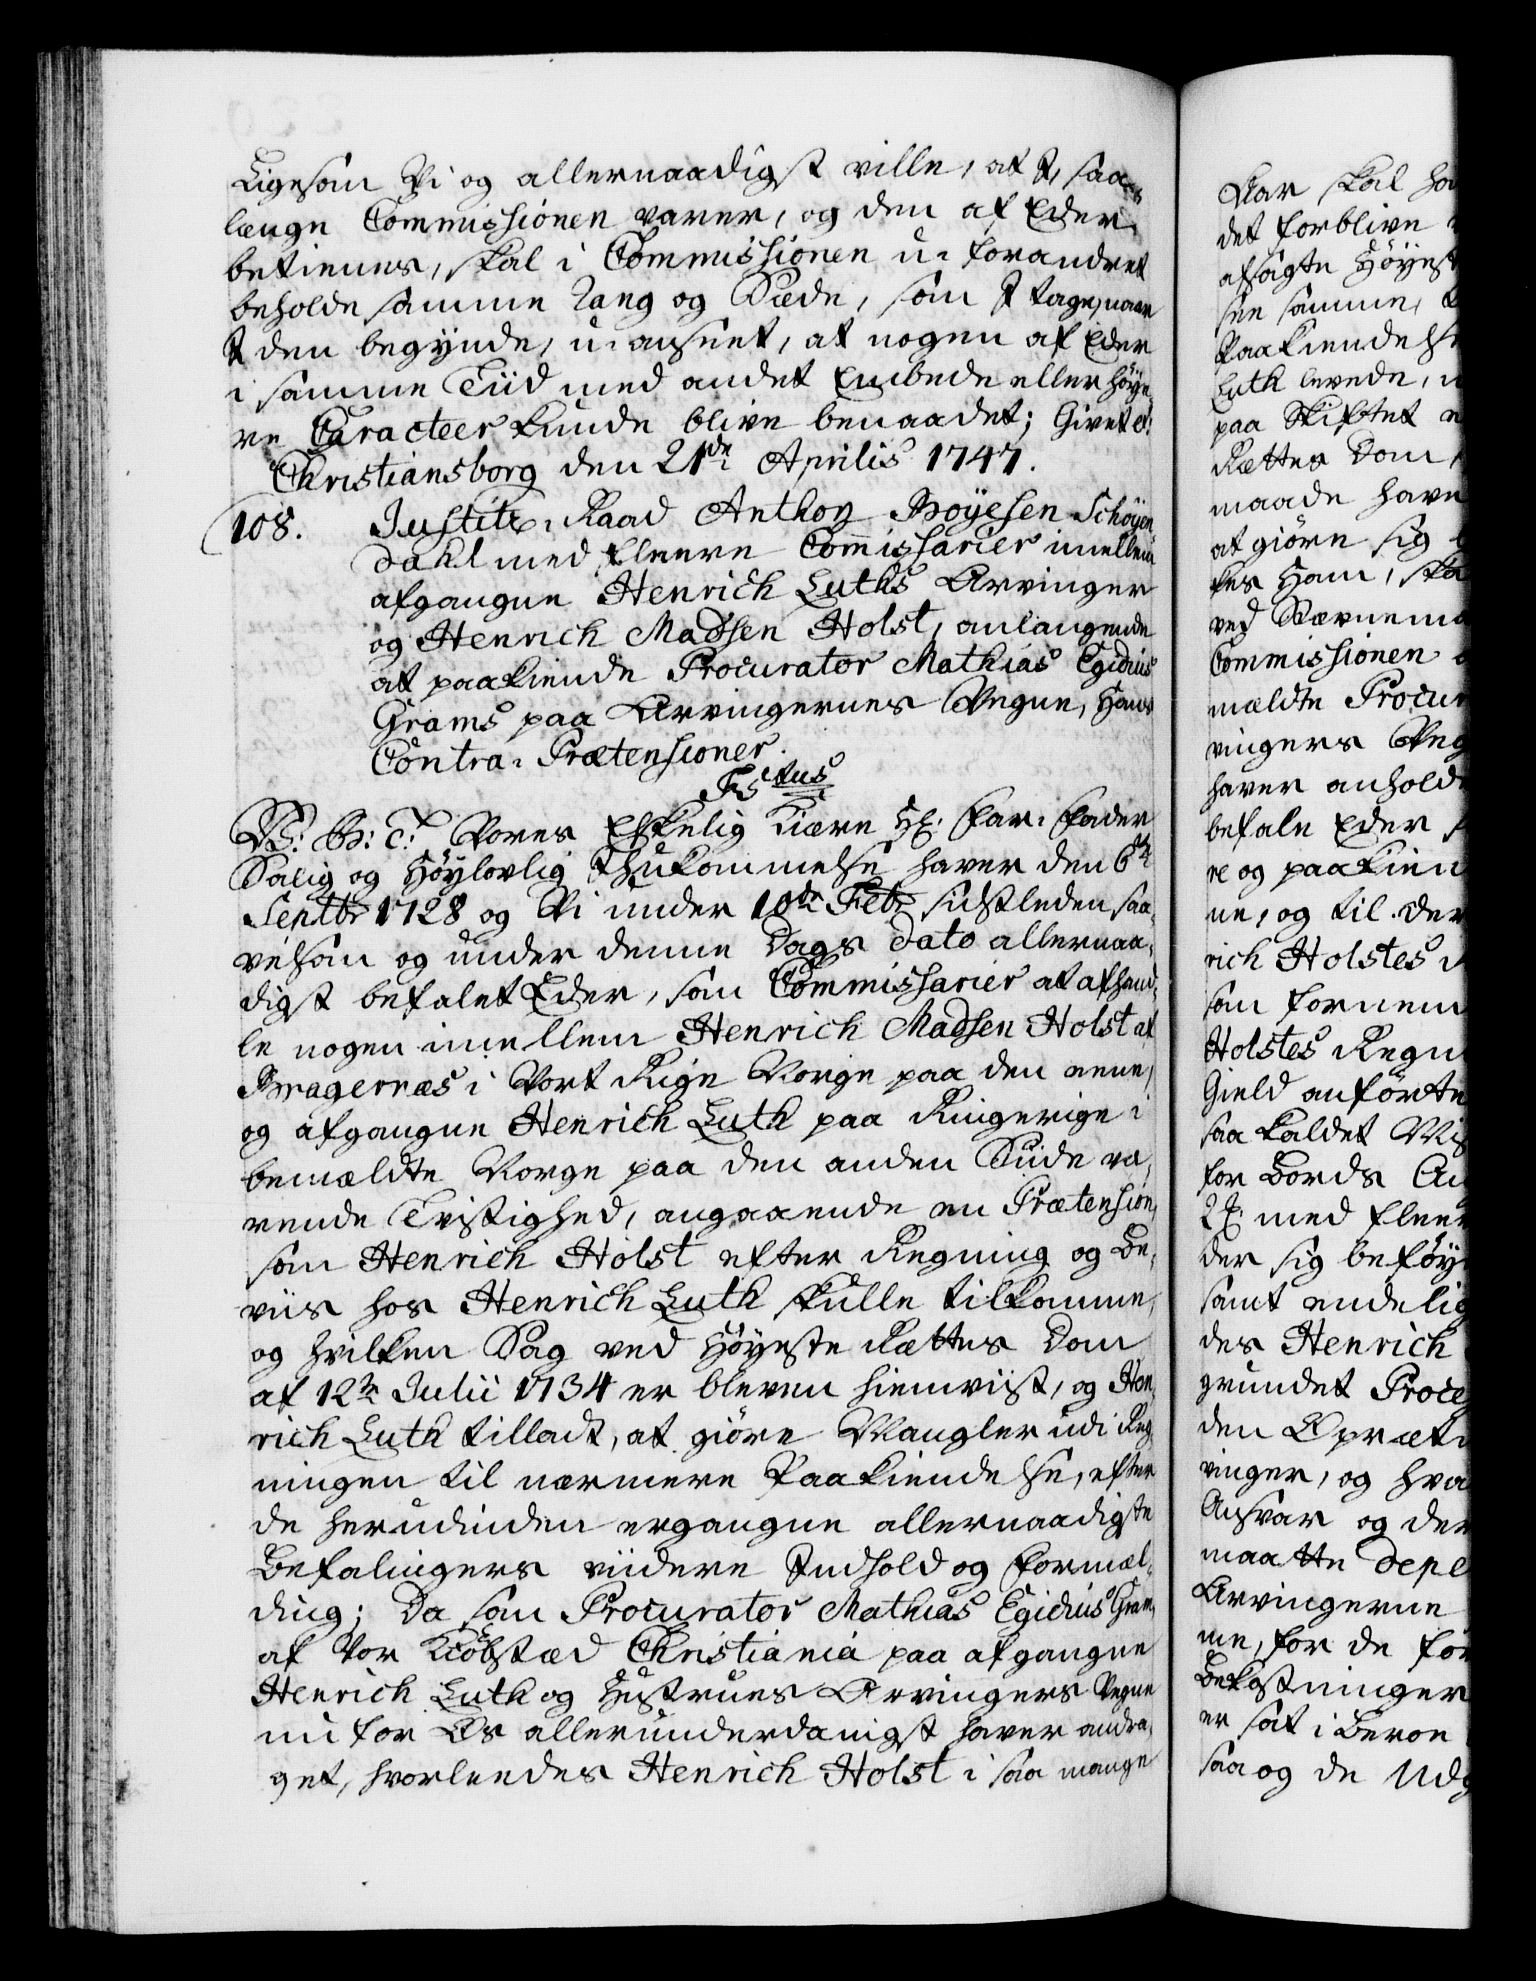 Ligesom Vi og allernaadigst ville, at I, saa
længe Commissionen varer, og den af Eder
betienes, skal i Commissionen u-forandret
beholde samme Rang og Sæde, som I tage, naar
I den begynde, u-anseet, at nogen af Eder
i samme Tiid med andet Embede eller høye-
re Caracteer kunde blive benaadet; Givet &:
Christiansborg den 21de Aprilis 1747.
108. Justitz-Raad Anthon Bøyesen Schøyen
dahl med fleere Commissarier imellem
afgangne Henrich Luths Arvinger
og Henrich Madsen Holst, anlangende
at paakiende Procurator Mathias Egidius
Grams paa Arvingernes Vegne, Hans
Contra-Prætensioner.
F5tus
V: G: T: Vores Elskelig Kiære Hr. Far-Fader
Salig og Høylovlig Ihukommelse haver den 6te
Septbr 1728 og Vi under 10de Feb: sidstleden saa-
velsom og under denne Dags dato allernaa-
digst befalet Eder, som Commissarier at afhand-
le nogen imellem Henrich Madsen Holst af
Bragernæs i Vort Rige Norge paa den eene,
og afgangne Henrich Luth paa Ringerige i
bemældte Norge paa den anden Siide væ-
rende Tvistighed, angaaende en Prætension,
som Henrich Holst efter Regning og Be-
viis hos Henrich Luth skulle tilkomme,
og hvilken Sag ved Høyeste Rettes Dom
af 12te Julii 1734 er bleven hiemviist, og Hen-
rich Luth tilladt, at giøre Mangler udi Reg
ningen til nærmere Paakiendelse, efter
de herudinden ergangne allernaadigste
Befalingers viidere Indhold og Formæl-
ding; Da som Procurator Mathias Egidius Gram,
af Vor Kiøbstæd Christiania paa afgangne
Henrich Luth og Hustrues Arvingers Vegne
nu for Os allerunderdanigst haver andra-
get, hvorleedes Henrich Holst i saa mange
Aar skal
det forblive
afsagte Høyest
see samme,
Paakiendelse
Luth levede,
paa Skiftet
Rettes Dom
maade have
at giøre sig
kes Ham,
ved Stævnem
Commissionen
mældte Procur
vingers Veg
haver anhold
befale Eder
re og paakien
ne, og til der
rich Holstes
som fornem
Holstes Regn
Gield anførte
saa kaldet
for Bords
med fleer
der sig beføy
samt endelig
des Henrich
grundet Proce
den Opræt
vinger, og hva
Ansvar og der
maatte depe
Arvingerne
ne, for de for
Bekostninger
er sat i Beroe
saa og de Udg